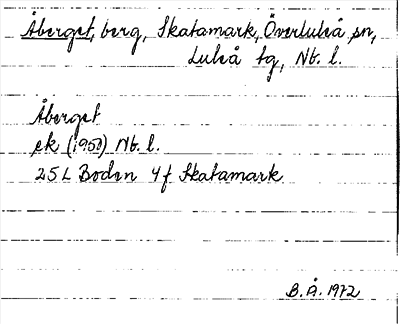 Åberget, berg, Skatamark, Överluleå sn,
Luleå tg, Nb. l.
Åberget
ek (1958) Nb. l.
25 L Boden 4 f Skatamark
B. Å. 1972